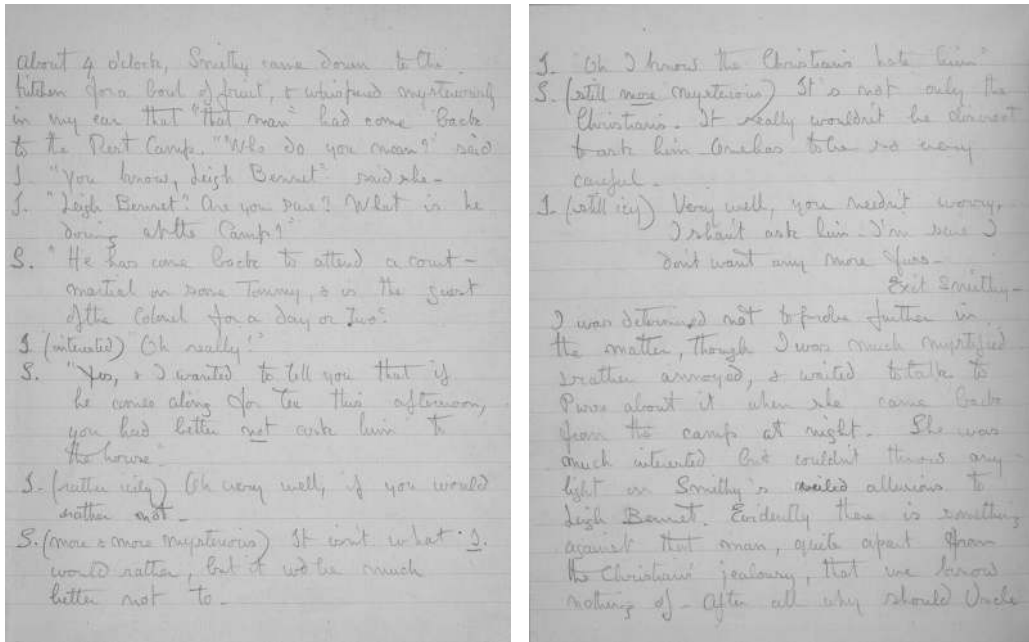 about 4 o'clock, Smithy came down to the
kitchen for a bowl of fruit, & whispered mysteriously
in my ear that "that man" had come back
to the Rest Camp. "Who do you mean?" said
I. "You know, Leigh Bennet" said she -
I. "Leigh Bennet? Are you sure? What is he
doing at the Camp?"
S. "He has come back to attend a court-
martial on some Tommy, & is the guest
of the Colonel for a day or two."
I. (interested) "Oh really!"
S. "Yes, & I wanted to tell you that if
he comes along for tea this afternoon,
you had better not ask him to
the house."
I. (rather icily) Oh very well, if you would
rather not -
S. (more & more mysterious) It isn't what I.
would rather, but it wd be much
better not to -
I. "Oh I know the Christians hate him"
S. (still more mysterious) It's not only the
Christians. It really wouldn't be discreet
to ask him. One has to be so very
careful -
I. (still icy) Very well, you needn't worry,
I shan't ask him. I'm sure I
don't want any more fuss -
Exit Smithy -
I was determined not to probe further in
the matter, though I was much mystified
& rather annoyed, & waited to talk to
about it when she came back
from the camp at night. She was
much interested but couldn't throw any
light on Smithy's veiled allusions to
Leigh Bennet. Evidently there is something
against that man, quite apart from
the Christians' jealousy, that we know
nothing of - After all why should Uncle